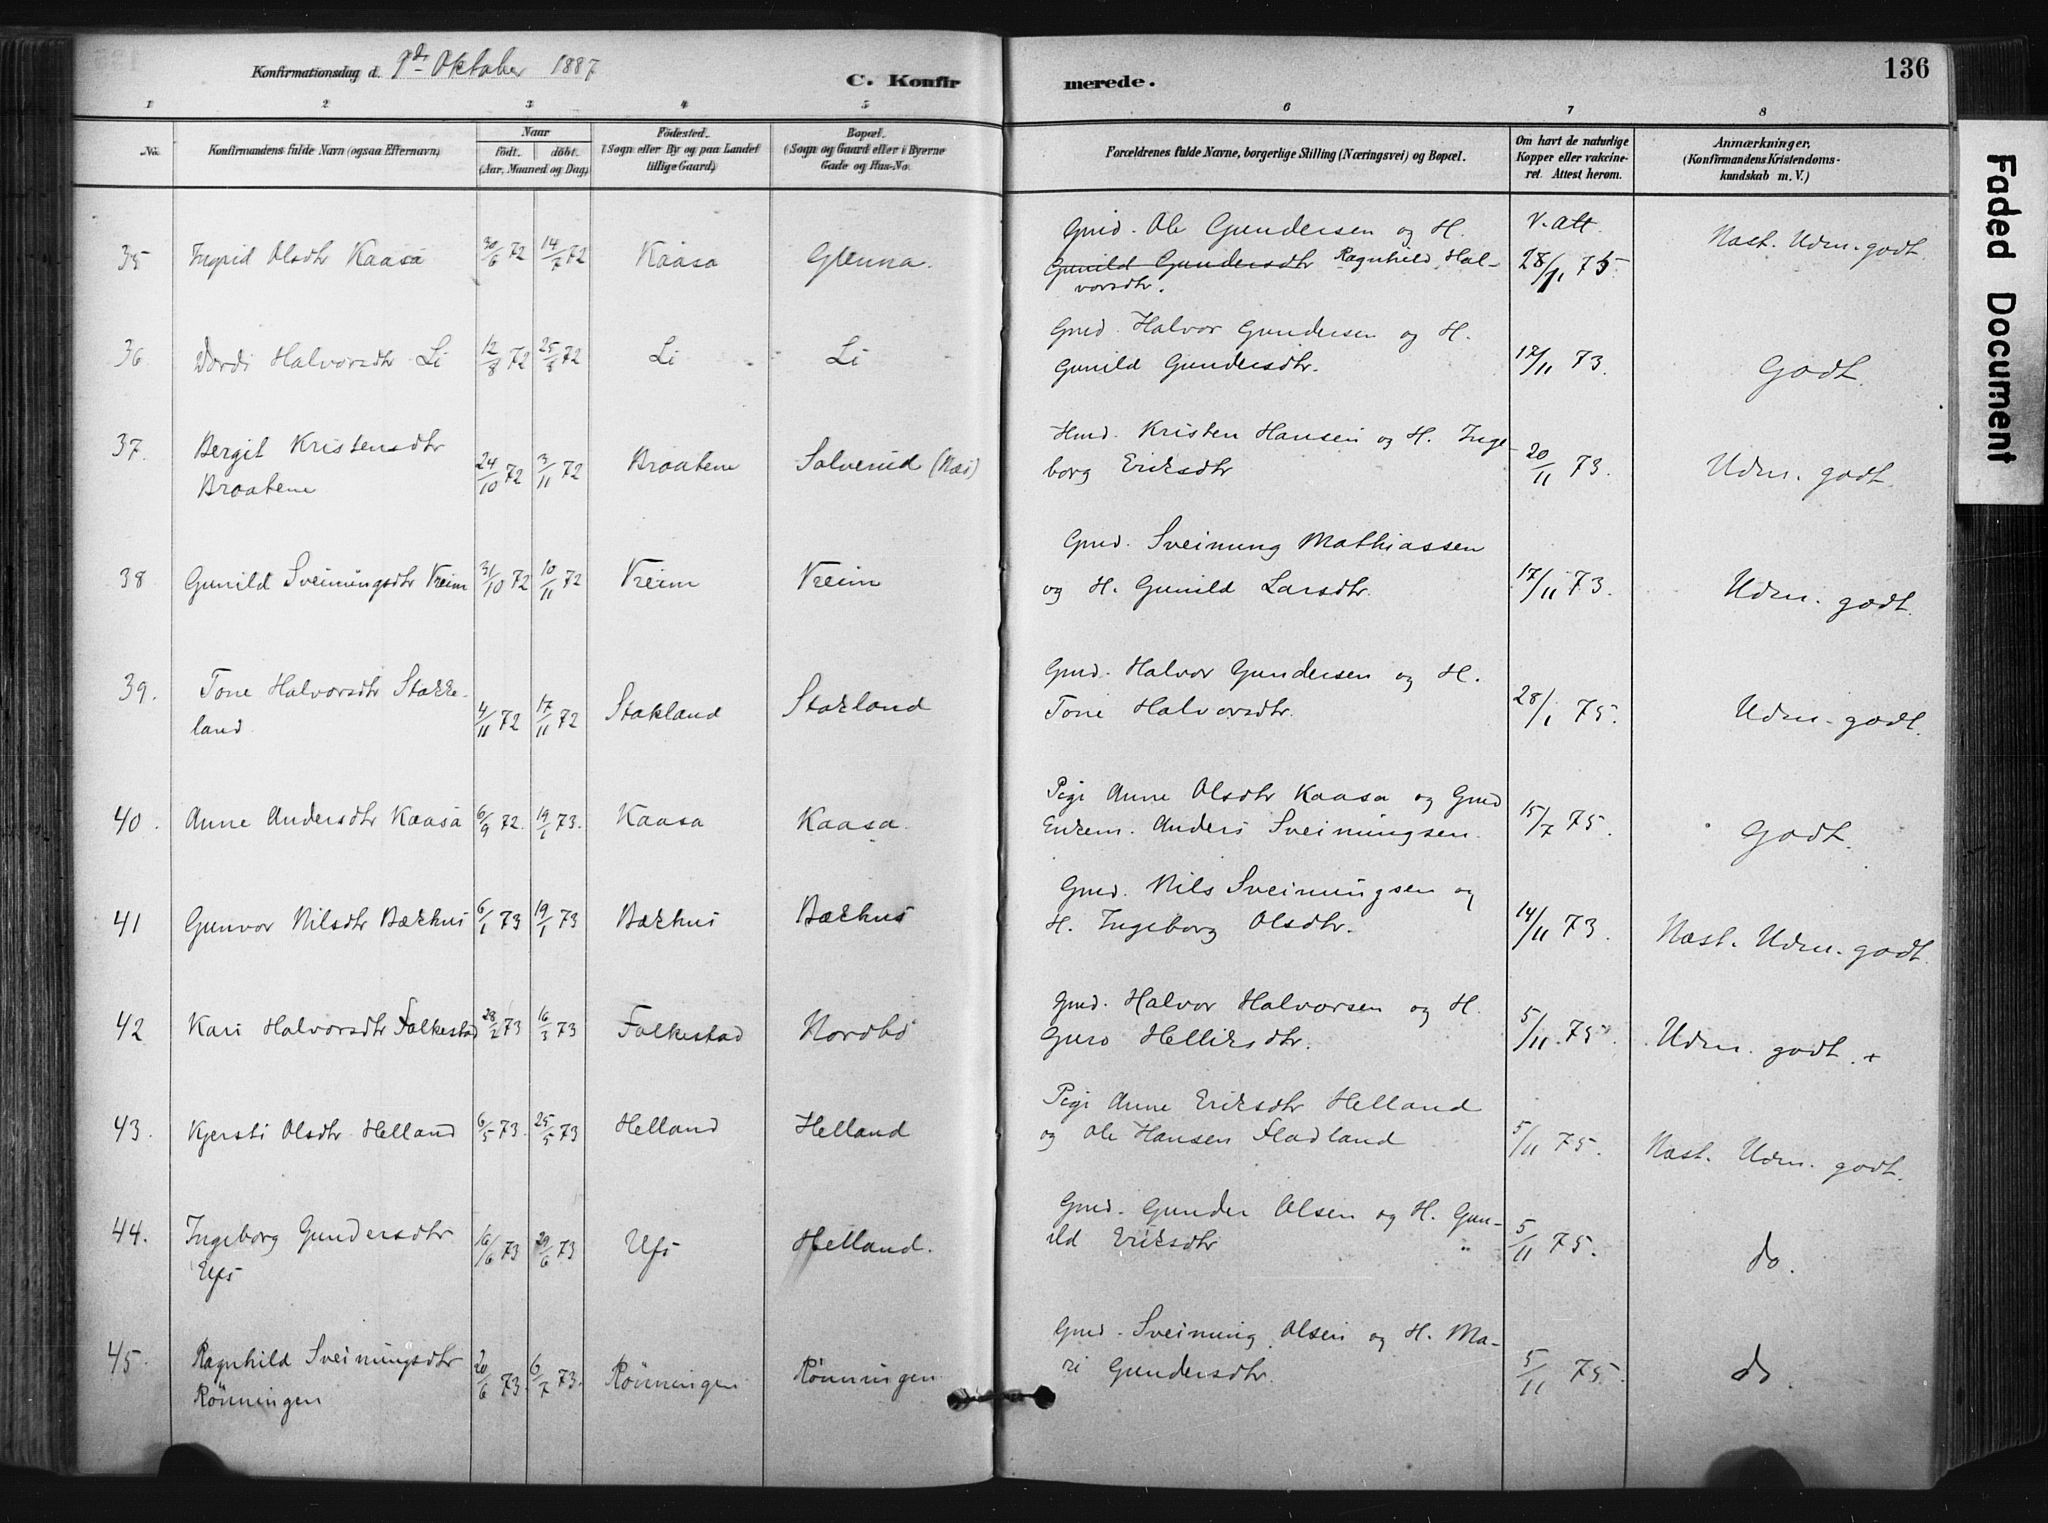 Konfirmationsdag d. 9de Oktober 1887
C. Konfirmerede.
136
1 2 3 4 5 6 7 8
No.
Konfirmandens fulde Navn (ogsaa Efternavn).
Naar
födt. döbt.
(Aar, Maaned og Dag)
Födested.
(Sogn eller By og paa Landet
tillige Gaard)
Bopæl.
(Sogn og Gaard eller i Byerne
Gade og Hus-No.
Forældrenes fulde Navne, borgerlige Stilling (Næringsvei) og Bopæl.
Om havt de naturlige
Kopper eller vakcine-
ret. Attest herom.
Anmærkninger.
(Konfirmandens Kristendoms-
kundskab m. V.)
Faded Document
35 Ingrid Olsdtr Kaasa 30/6 72 14/7 72 Kaasa Glenna.
Gmd. Ole Gundersen og H.
Gunild Gundersdtr Ragnhild Hal-
vorsdtr.
V. Att.
28/1 75.
Næst. Udm. godt.
36. Dordi Halvorsdtr Li 12/8 72 25/8 72 Li Li
Gmd. Halvor Gundersen og H.
Gunild Gundersdtr.
17/11 73.
Godt.
37. Bergit Kristensdtr
Braatene 24/10 72 3/11 72 Braatene Solverud (Næs)
Hmd. Kristen Hansen og H. Inge-
borg Eriksdtr
20/11 73.
Udm. godt.
38 Gunild Sveinungsdtr Vreim 31/10 72 10/11 72 Vreim Vreim
Gmd. Sveinung Mathiassen
og H. Gunild Larsdtr.
17/11 73.
Udm. godt.
39. Tone Halvorsdtr Stakke-
land 4/11 72 17/11 72 Stakland Stakland
Gmd. Halvor Gundersen og H.
Tone Halvorsdtr.
28/1 75.
Udm. godt.
40. Anne Andersdtr Kaasa 6/9 72. 19/1 73. Kaasa Kaasa.
Pige Anne Olsdtr Kaasa og Gmd
Enkem. Anders Sveinungsen.
15/7 75.
Godt.
41 Gunvor Nilsdtr Bækhus 6/1 73 19/1 73 Bækhus Bækhus
Gmd. Nils Sveinungsen og
H. Ingeborg Olsdtr.
14/11 73.
Næst. Udm. godt.
42 Kari Halvorsdtr Folkestad 28/2 73 16/3 73 Folkestad Nordbö
Gmd. Halvor Halvorsen og H.
Guro Helliksdtr.
5/11 75.
Udm. godt. +
43. Kjersti Olsdtr Helland 6/5 73. 25/5 73 Helland Helland
Pige Anne Eriksdtr Helland
og Ole Hansen Fladland
5/11 75.
Næst. Udm. godt.
44. Ingeborg Gundersdtr
Ufs 16/6 73 29/6 73 Ufs Helland.
Gmd. Gunder Olsen og H. Gun-
ild Eriksdtr
5/11 75.
do.
45. Ragnhild Sveinungsdtr
Rönningen 20/6 73. 6/7 73. Rönningen Rönningen
Gmd. Sveinung Olsen og H. Ma-
ri Gundersdtr.
5/11 75.
do.